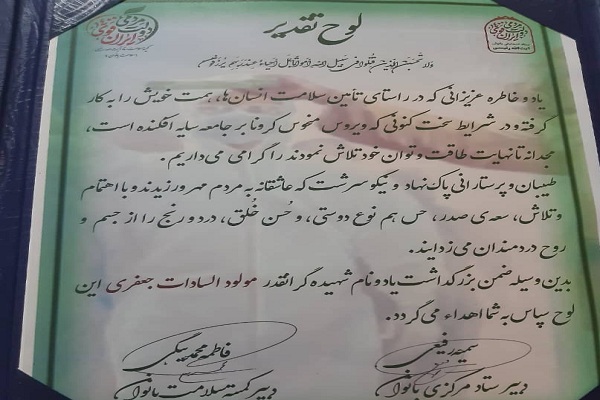 لوح تقدیر
ولا تحسبن الذین قتلوا فی سبیل الله امواتا بل احیاء عند ربهم یرزقون
یاد و خاطره عزیزانی که در راستای تامین سلامت انسان‌ها، همت خویش را به کار
گرفته و در شرایط سخت کنونی که ویروس منحوس کرونا بر جامعه سایه افکنده است،
مجدانه تا نهایت طاقت و توان خود تلاش نمودند را گرامی می‌داریم.
طبیبان و پرستارانی پاک نهاد و نیکو سرشت که عاشقانه به مردم مهر ورزیدند و با اهتمام
و تلاش، سعه‌ی صدر، حس هم نوع دوستی، و حُسن خُلق، درد و رنج را از جسم و
روح دردمندان می‌زدایند.
بدین وسیله ضمن بزرگداشت یاد و نام شهیده گرانقدر مولود السادات جعفری این
لوح سپاس به شما اهداء می‌گردد.
سمیه رفیعی
دبیر ستاد مرکزی بانوان
فاطمه محمدبیگی
دبیر کمیته سلامت بانوان